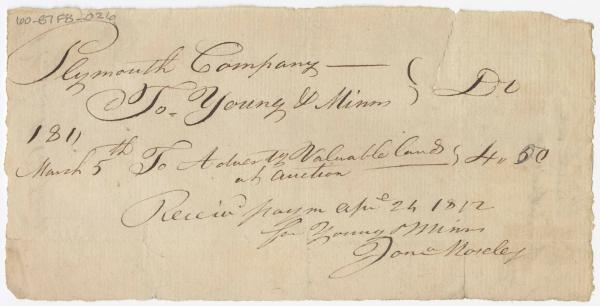 60-87FB-026
Plymouth Company — Dr
To Young & Minns
1811
March 5th To Advertg Valuable lands 4.50
at auction
Receivd paym Apl 24 1812
for Young & Minns
Jona Moseley